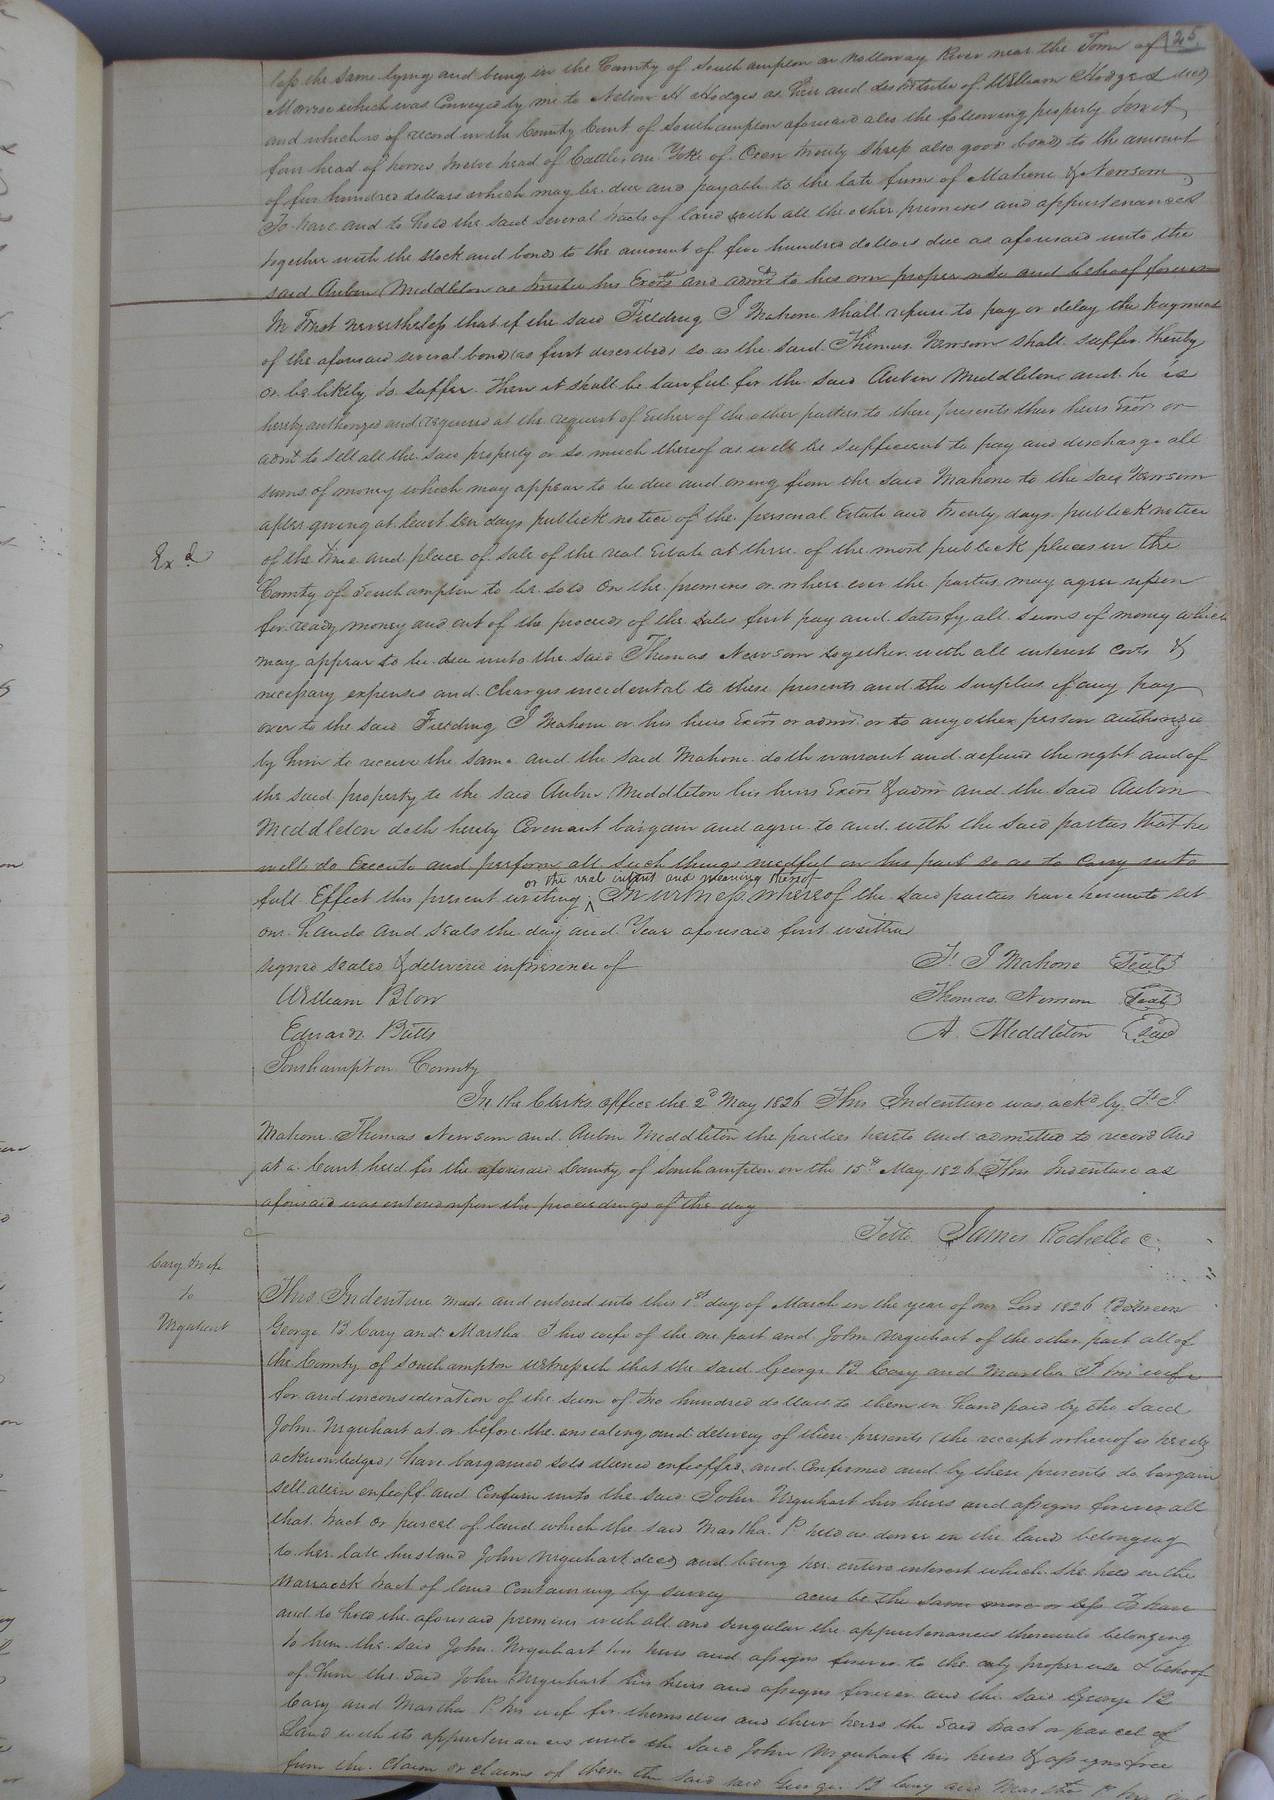 25
less the same lying and being in the County of Southampton on Nottoway River near the Town of
Monroe which was conveyed by me to Nelson H Hodges as heir and distributee of William Hodges decd
and which is of record in the County Court of Southampton aforesaid also the following property to wit
four head of horses twelve head of Cattle, one Yoke of Oxen twenty Sheep also good bonds to the amount
of five hundred dollars which may be due and payable to the late firm of Mahone & Newsom
To have and to hold the said several tracts of land with all the other premises and appurtenances
together with the stock and bonds to the amount of five hundred dollars due as aforesaid unto the
said Aubin Middleton as trustee his Exors and admrs to his own proper use and behoof forever
In Trust nevertheless that if the said Fielding J Mahone shall refuse to pay or delay the payment
of the aforesaid several bonds (as first described) so as the said Thomas Newsom shall suffer thereby
or be likely to suffer then it shall be lawful for the said Aubin Middleton and he is
hereby authorized and required at the request of Either of the other parties to these presents their heirs Exors or
admrs to sell all the said property or so much thereof as will be sufficient to pay and discharge all
sums of money which may appear to be due and owing from the said Mahone to the said Newsom
after giving at least ten days publick notice of the personal Estate and twenty days publick notice
of the time and place of sale of the real Estate at three of the most publick places in the
Exd
County of Southampton to be sold on the premises or where ever the parties may agree upon
for ready money and out of the proceeds of the sales first pay and satisfy all sums of money which
may appear to be due unto the said Thomas Newsom together with all interest Costs &
necessary expenses and charges incidental to these presents and the surplus if any pay
over to the said Fielding J Mahone or his heirs Exors or admrs or to any other person authorized
by him to receive the same and the said Mahone doth warrant and defend the right and of
the said property to the said Aubin Middleton his heirs Exors & admrs and the said Aubin
Middleton doth hereby Covenant bargain and agree to and with the said parties that he
will do Execute and perform all such things needful on his part so as to carry into
or the real intent and meaning thereof
full Effect this present writing ^ In witness whereof the said parties have hereunto set
our hands and seals the day and Year aforesaid first written
signed sealed & delivered in presence of
F. J Mahone Seal
William Blow
Thomas Newsom Seal
Edward Butts
A. Middleton Seal
Southampton County
In the Clerks office the 2d May 1826 This Indenture was ackd by F. J.
Mahone Thomas Newsom and Aubin Middleton the parties hereto and admitted to record And
at a Court held for the aforesaid County of Southampton on the 15th May 1826 This Indenture as
aforesaid was entered upon the proceedings of the day
Teste James Rochelle C.
Cary & wife
to
Urquhart
This Indenture made and entered into this 1st day of March in the year of our Lord 1826 Between
George B Cary and Martha P his wife of the one part and John Urquhart of the other part all of
the County of Southampton witnesseth that the said George B. Cary and Martha P his wife
for and in consideration of the sum of two hundred dollars to them in hand paid by the said
John Urquhart at or before the ensealing and delivery of these presents (the receipt whereof is hereby
acknowledged) have bargained sold aliened enfeoffed and Confirmed and by these presents do bargain
sell alien enfeoff and Confirm unto the said John Urquhart his heirs and assigns forever all
that tract or parcel of land which the said Martha P held as dower in the land belonging
to her late husband John Urquhart decd and being her entire interest which she held in the
Warrcick tract of land Containing by survey acres be the same more or less To have
and to hold the aforesaid premises with all and singular the appurtenances thereunto belonging
to him the said John Urquhart his heirs and assigns forever to the only proper use & behoof
of him the said John Urquhart his heirs and assigns forever and the said George B
Cary and Martha P his wife for themselves and their heirs the said tract or parcel of
Land with its appurtenances unto the said John Urquhart his heirs & assigns free
from the claim or claims of them the said said George B Cary and Martha P his